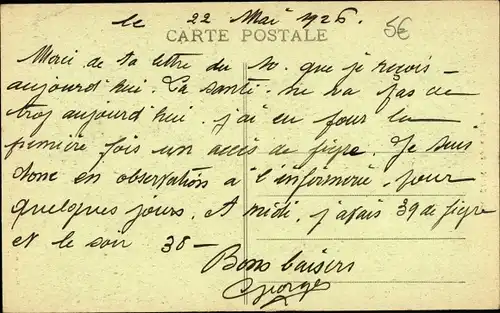 le 22 Mai 1926.
5€
CARTE POSTALE
Merci de ta lettre du 10. que je reçois
aujourd'hui. La santé ne va pas de
trop aujourd'hui. j'ai eu pour la
première fois un accès de fièvre. Je suis
donc en observation à l'infirmerie pour
quelques jours. A midi, j'avais 39 de fièvre
et le soir 38 -
Bons baisers
Georges